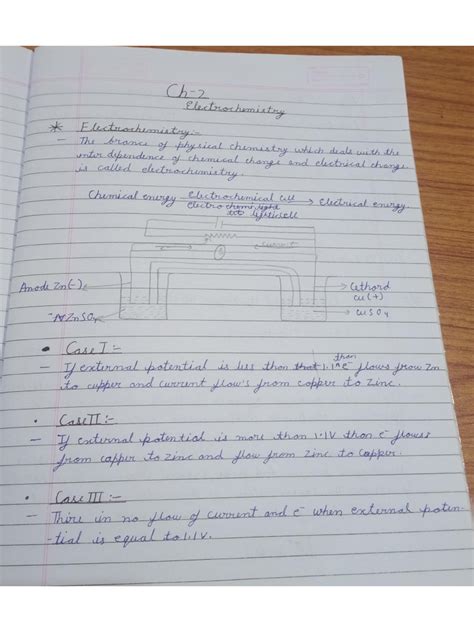 Ch-2
Electrochemistry
* Electrochemistry:-
- The brance of physical chemistry which deals with the
inter dependence of chemical change and electrical change
is called electrochemistry.
Chemical energy Electrochemical cell → Electrical energy
current
Anode Zn(-)
Cathord
Cu(+)
ZnSO4
CuSO4
• Case I:-
- If external potential is less than 1.1 than e⁻ flows from Zn
to cupper and current flow's from copper to Zinc.
• Case II:-
- If external potential is more than 1.1V than e⁻ flowss
from copper to zinc and flow from zinc to Copper.
• Case III:-
- Thire in no flow of current and e⁻ when external poten-
-tial is equal to 1.1V.